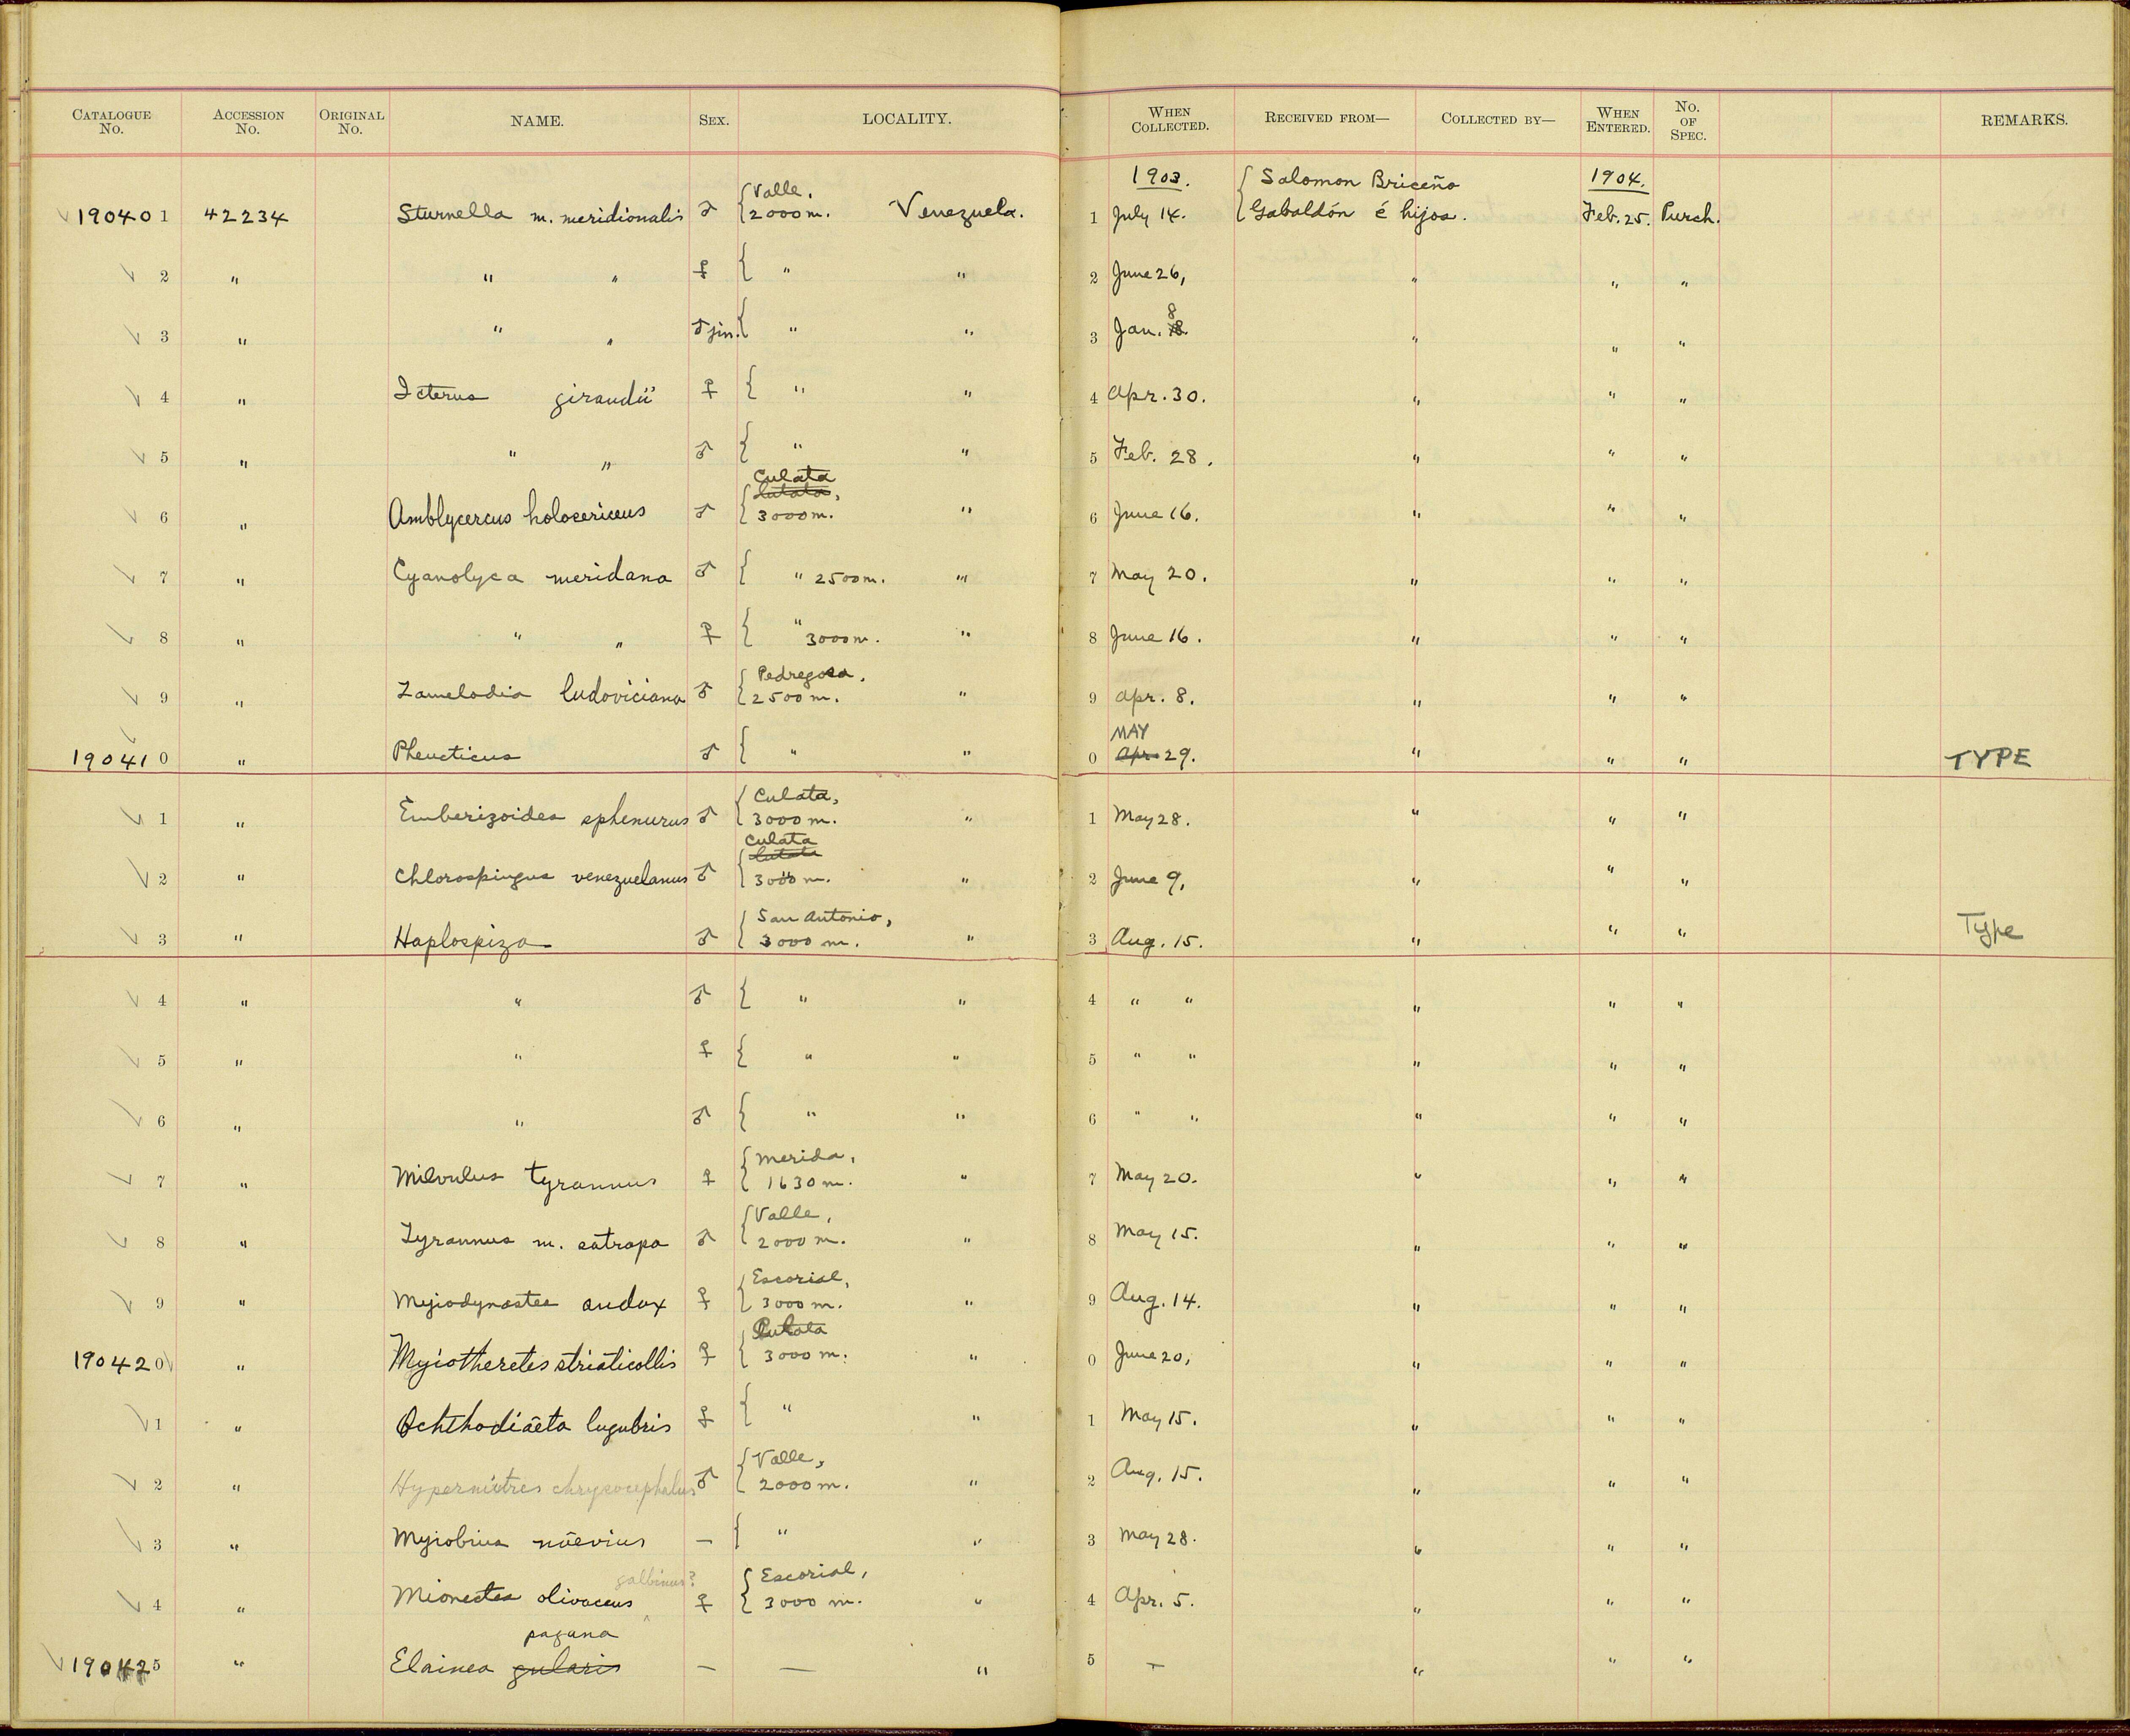 CATALOGUE No. ACCESSION No. ORIGINAL No. NAME. SEX. LOCALITY. WHEN COLLECTED. RECEIVED FROM— COLLECTED BY— WHEN ENTERED. No. OF SPEC. REMARKS.
Valle, 1903. Salomon Briceño 1904.
190401 42234 Sturnella m. meridionalis ♂ 2000 m. Venezuela. 1 July 14. Gabaldón é hijos. Feb. 25. Purch.
2 " " " ♀ " " 2 June 26, " " "
8
3 " " " ♂ jun. " " 3 Jan. 18. " " "
4 " Icterus giraudii ♀ " " 4 Apr. 30. " " "
5 " " " ♂ " " 5 Feb. 28. " " "
Culata
6 " Amblycercus holosericeus ♂ 3000 m. " 6 June 16. " " "
7 " Cyanolyca meridana ♂ " 2500 m. " 7 May 20. " " "
8 " " " ♀ " 3000 m. " 8 June 16. " " "
Pedregosa,
9 " Zamelodia ludoviciana ♂ 2500 m. " 9 Apr. 8. " " "
MAY
190410 " Pheucticus ♂ " " 0 Apr. 29. " " " TYPE
Culata,
1 " Emberizoides sphenurus ♂ 3000 m. " 1 May 28. " " "
Culata
2 " Chlorospingus venezuelanus ♂ 3000 m. " 2 June 9, " " "
San Antonio,
3 " Haplospiza ♂ 3000 m. " 3 Aug. 15. " " " Type
4 " " ♂ " " 4 " " " " "
5 " " ♀ " " 5 " " " " "
6 " " ♂ " " 6 " " " " "
Merida,
7 " Milvulus tyrannus ♀ 1630 m. " 7 May 20. " " "
Valle,
8 " Tyrannus m. satrapa ♂ 2000 m. " 8 May 15. " " "
Escorial,
9 " Myiodynastes audax ♀ 3000 m. " 9 Aug. 14. " " "
Culata
190420 " Myiotheretes striaticollis ♀ 3000 m. " 0 June 20, " " "
1 " Ochthodiaeta lugubris ♀ " " 1 May 15. " " "
Valle,
2 " Hypermitres chrysocephalus ♂ 2000 m. " 2 Aug. 15. " " "
3 " Myiobius naevius — " " 3 May 28. " " "
galbinus? Escorial,
4 " Mionectes olivaceus ♀ 3000 m. " 4 Apr. 5. " " "
pagana
190425 " Elainea gularis — — " 5 — " " "